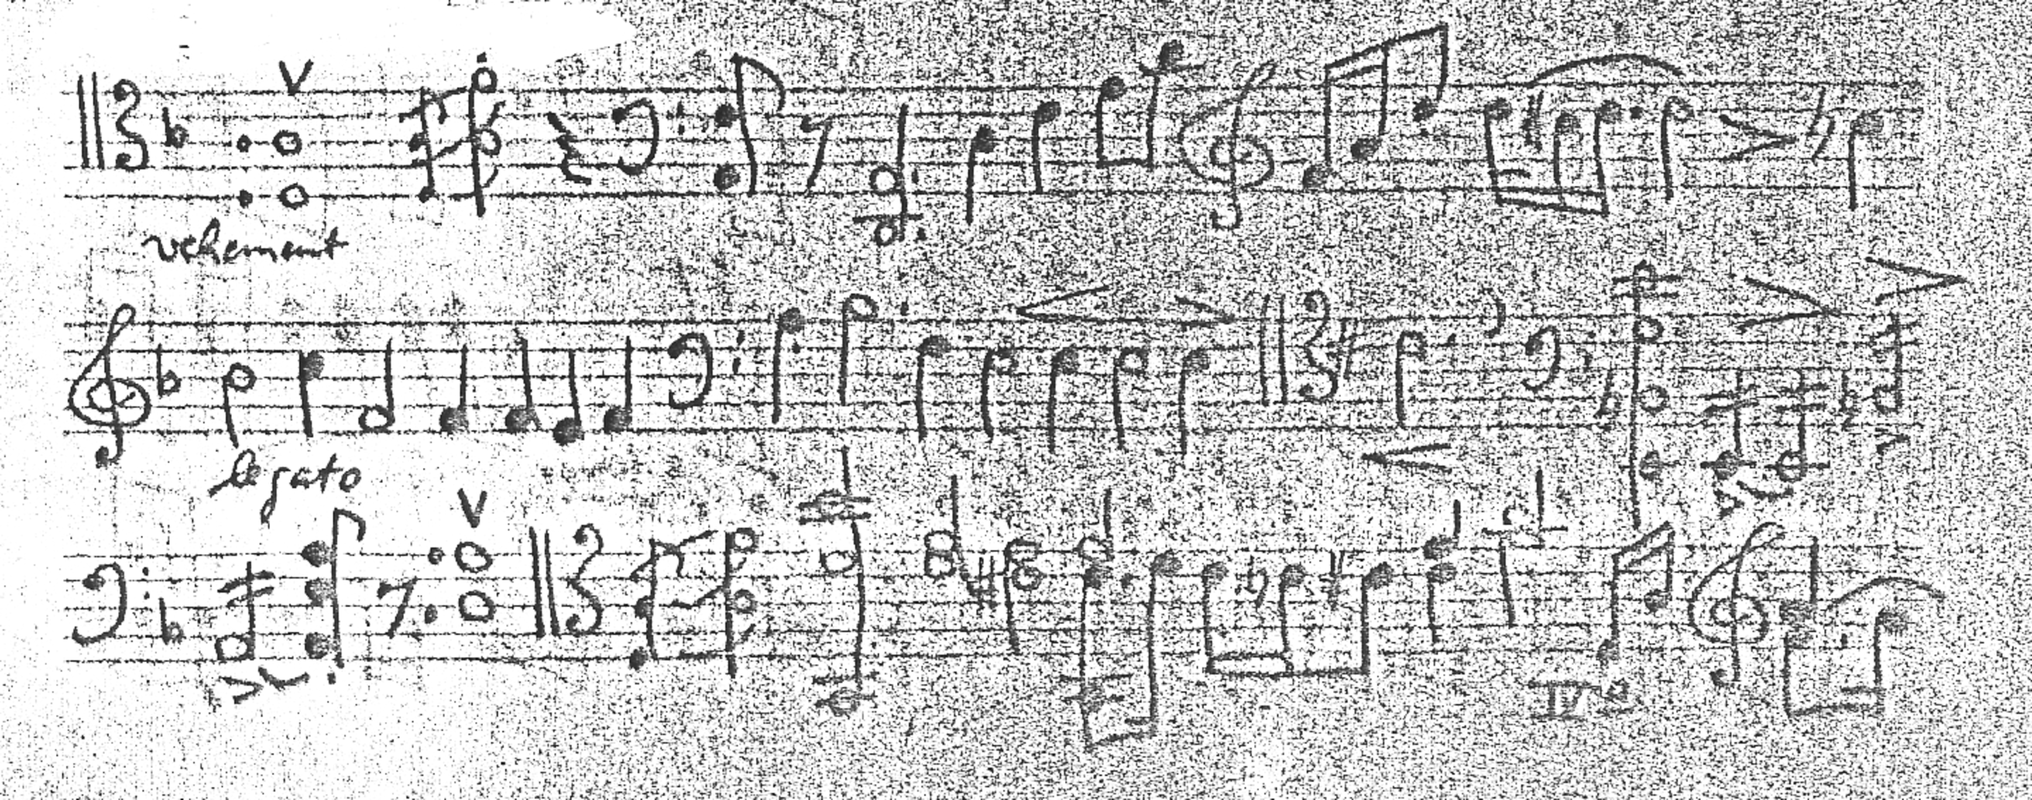 vehement
legato
IVa